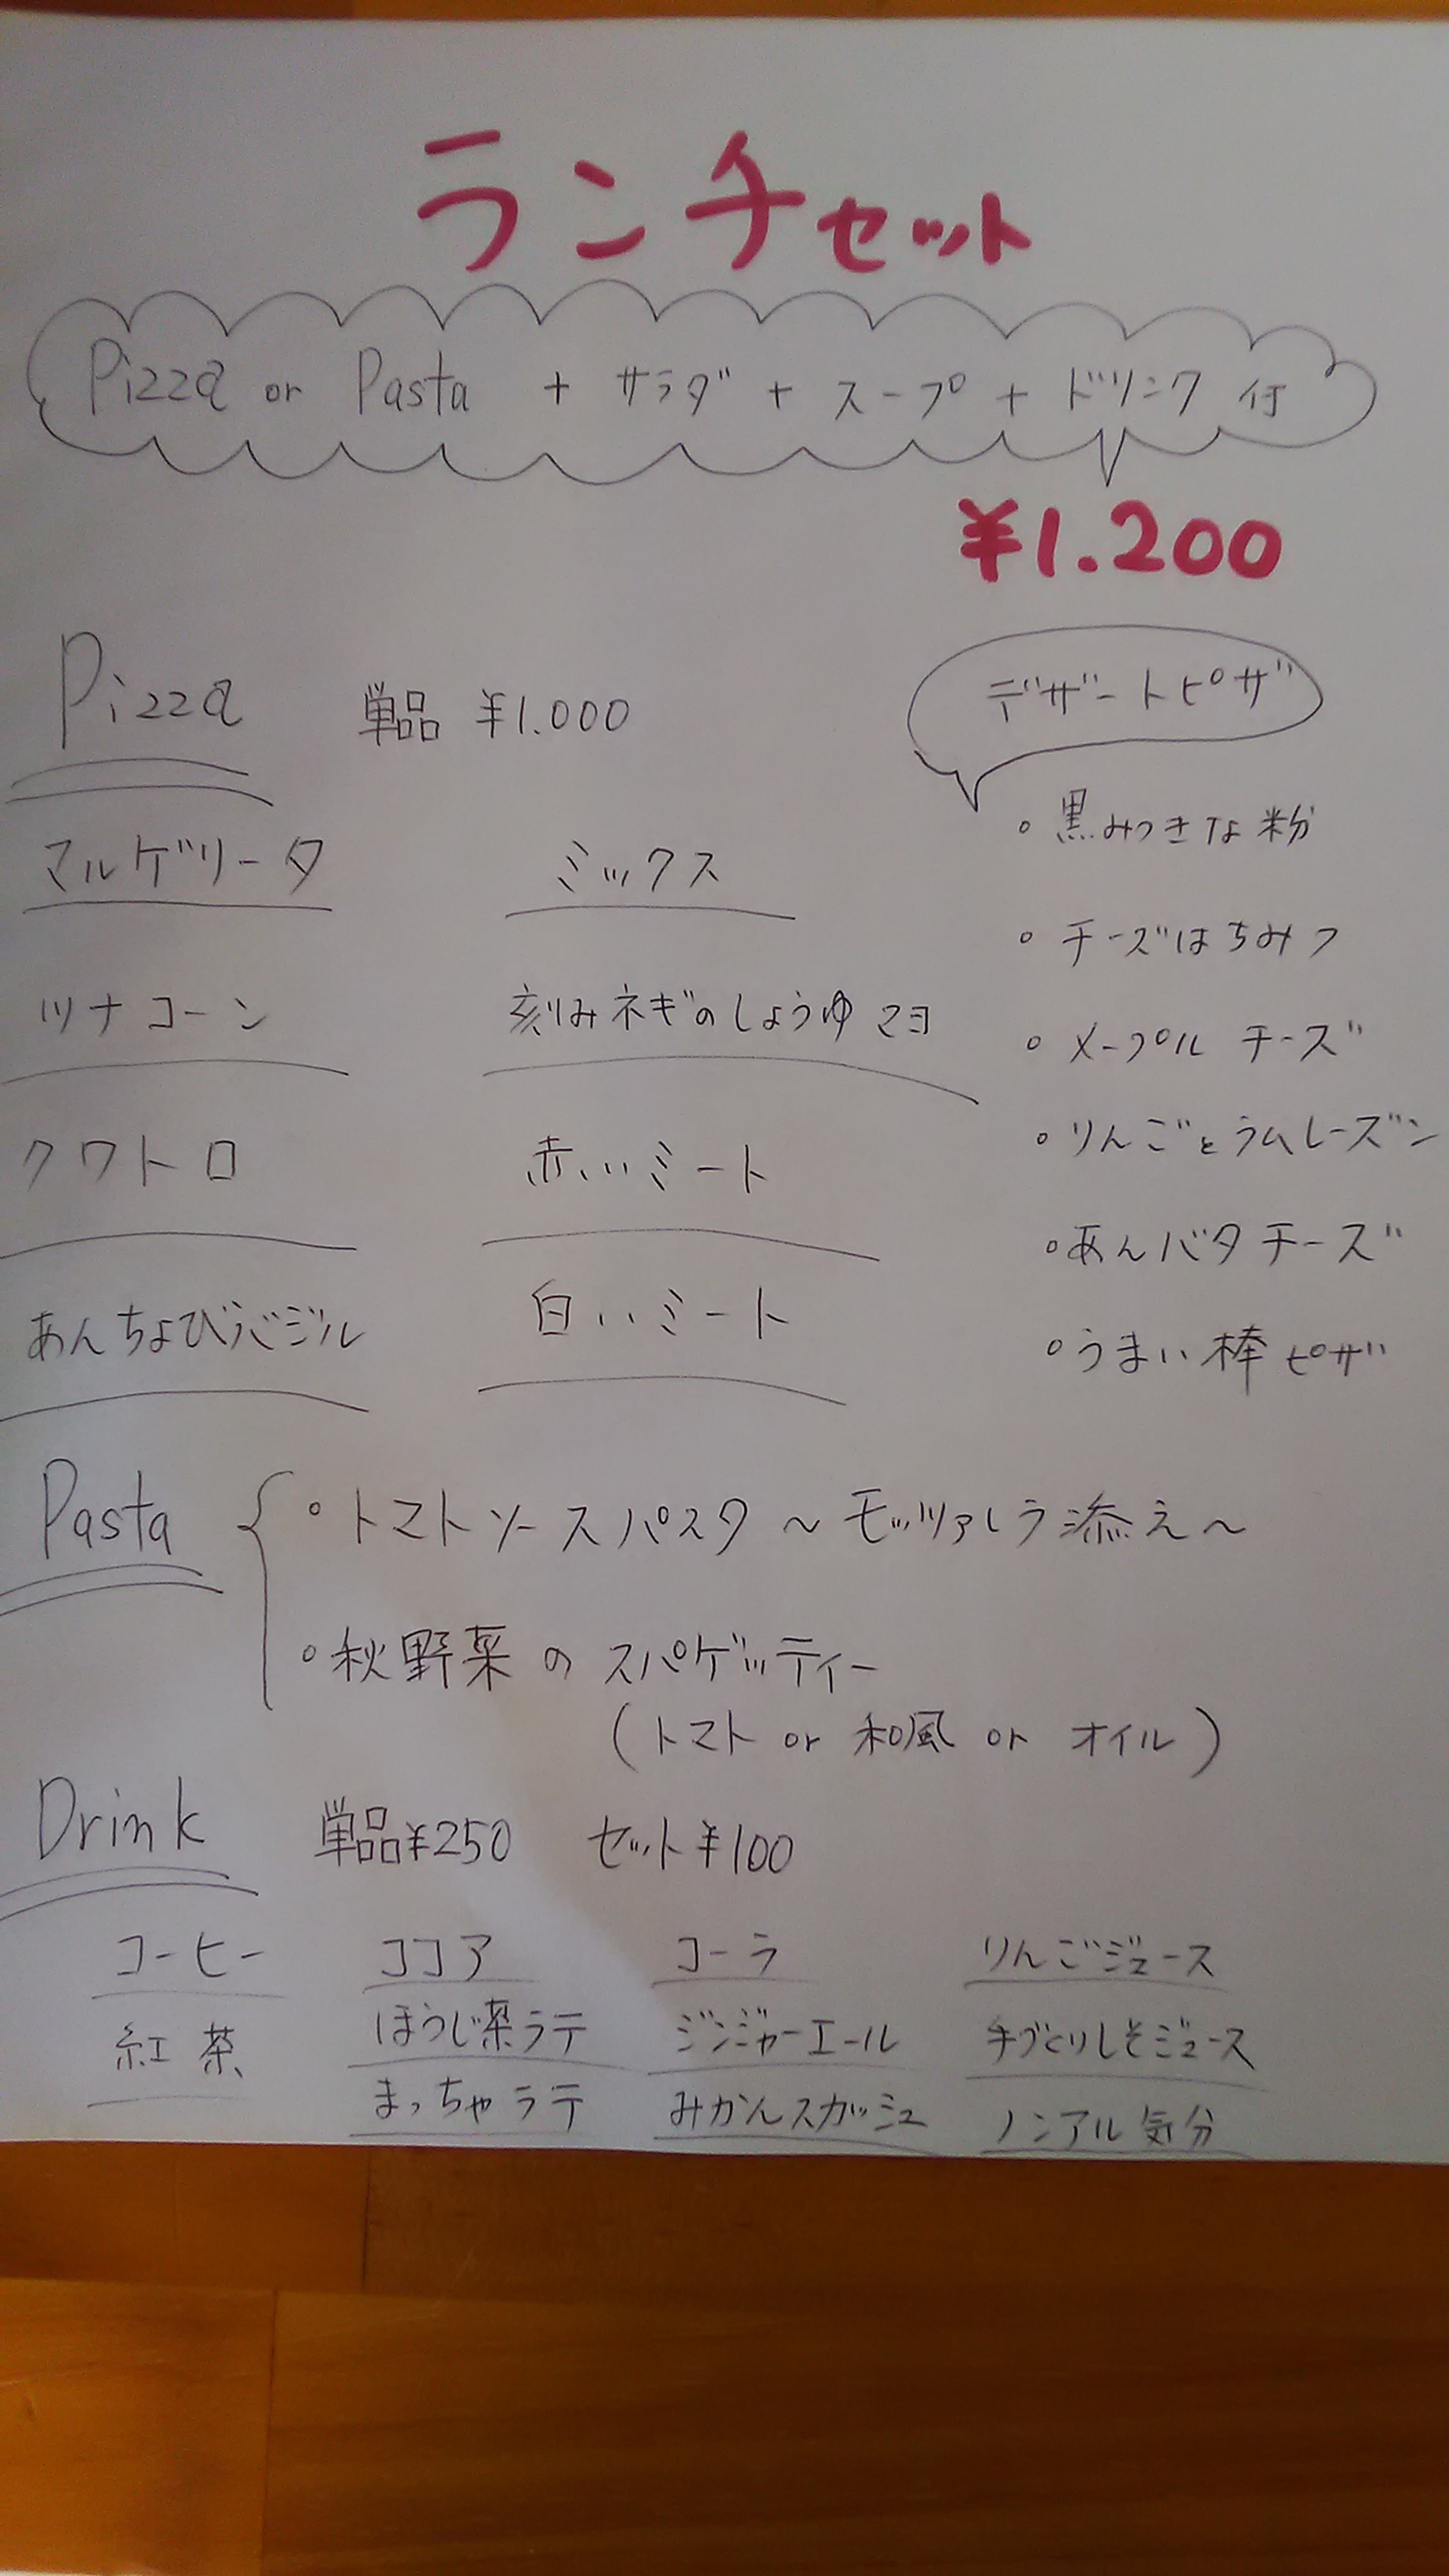 ランチセット
Pizza or Pasta + サラダ + スープ + ドリンク付
¥1.200
Pizza 単品 ¥1.000
マルゲリータ ミックス
ツナコーン 刻みネギのしょうゆマヨ
クワトロ 赤いミート
あんちょびバジル 白いミート
デザートピザ
・黒みつきな粉
・チーズはちみつ
・メープルチーズ
・りんごとラムレーズン
・あんバタチーズ
・うまい棒ピザ
Pasta
・トマトソースパスタ ～モッツァレラ添え～
・秋野菜のスパゲッティー
(トマト or 和風 or オイル)
Drink 単品¥250 セット¥100
コーヒー ココア コーラ りんごジュース
紅茶 ほうじ茶ラテ ジンジャーエール 手づくりしそジュース
まっちゃラテ みかんスカッシュ ノンアル気分